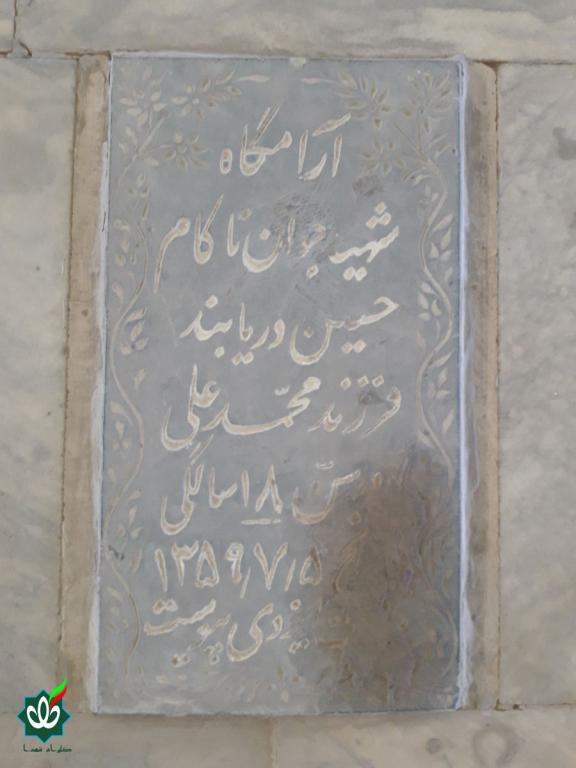 آرامگاه
شهید جوان ناکام
حسین دریابند
فرزند محمد علی
سن ۱۸ سالگی
۱۳۵۹/۷/۵
ایزدی پیوست
گلزار شهدا